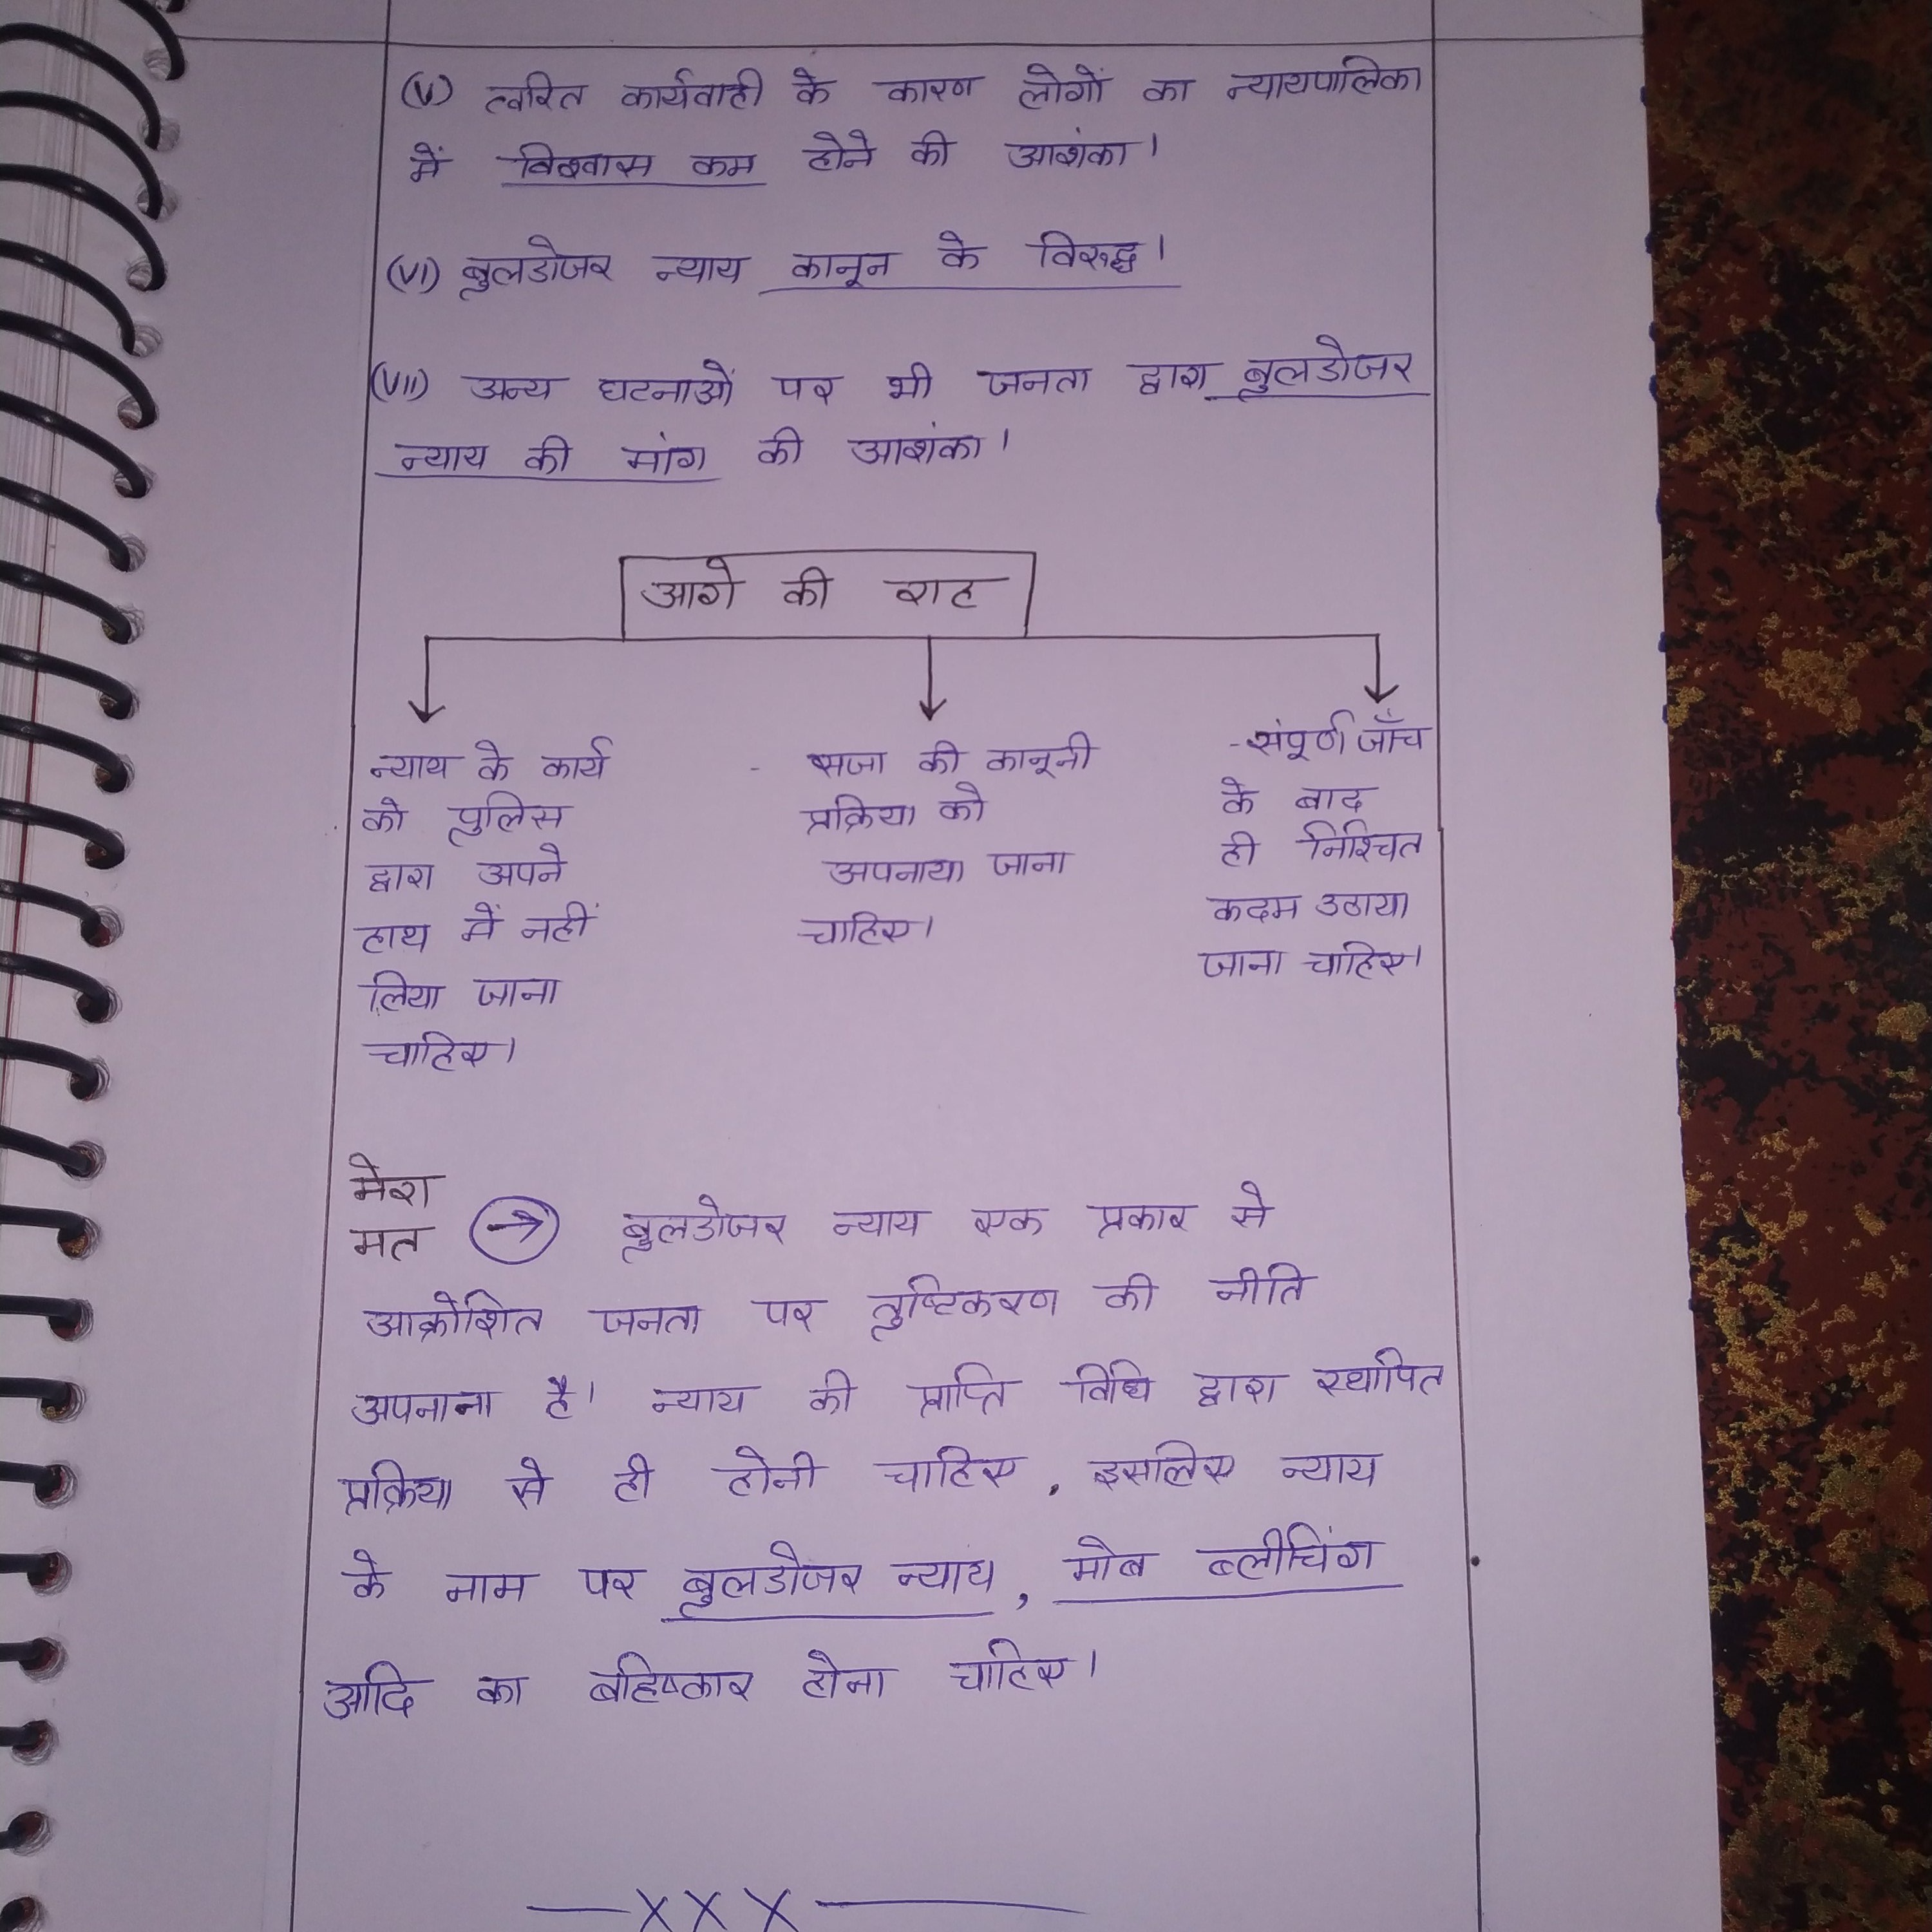 (V) त्वरित कार्यवाही के कारण लोगों का न्यायपालिका
में विश्वास कम होने की आशंका।
(VI) बुलडोजर न्याय कानून के विरुद्ध।
(VII) अन्य घटनाओं पर भी जनता द्वारा बुलडोजर
न्याय की मांग की आशंका।
आगे की राह
न्याय के कार्य
को पुलिस
द्वारा अपने
हाथ में नहीं
लिया जाना
चाहिए।
- सजा की कानूनी
प्रक्रिया को
अपनाया जाना
चाहिए।
- संपूर्ण जाँच
के बाद
ही निश्चित
कदम उठाया
जाना चाहिए।
मेरा
मत → बुलडोजर न्याय एक प्रकार से
आक्रोशित जनता पर तुष्टिकरण की नीति
अपनाना है। न्याय की प्राप्ति विधि द्वारा स्थापित
प्रक्रिया से ही होनी चाहिए, इसलिए न्याय
के नाम पर बुलडोजर न्याय, मोब ब्लीचिंग
आदि का बहिष्कार होना चाहिए।
—XXX—